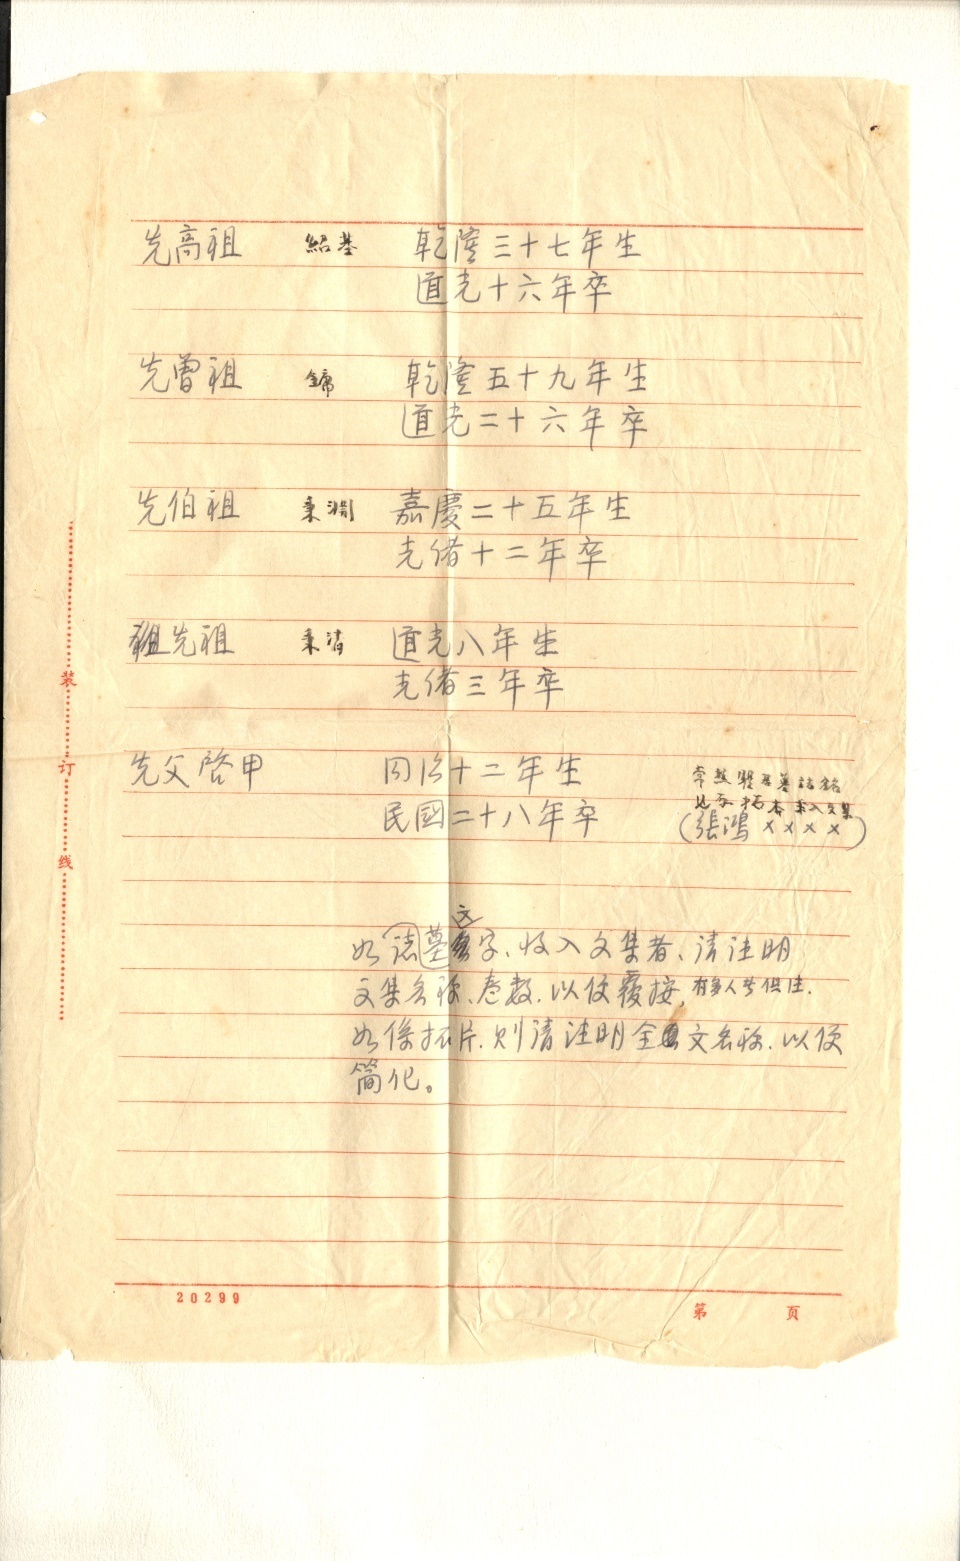 先高祖 紹基 乾隆三十七年生
道光十六年卒
先曾祖 鏞 乾隆五十九年生
道光二十六年卒
先伯祖 秉淵 嘉慶二十五年生
光緒十二年卒
先祖 秉清 道光八年生
光緒三年卒
先父啓甲 同治十二年生
民國二十八年卒
常熟瞿君墓誌銘
見 拓本 未入文集
(張鴻××××)
这
如誌墓 字、收入文集者、请注明
文集名称、卷数、以便覆按, 有多人号俱注.
如係拓片、则请注明全文名称、以便
简化。
装
订
线
20299
第 页